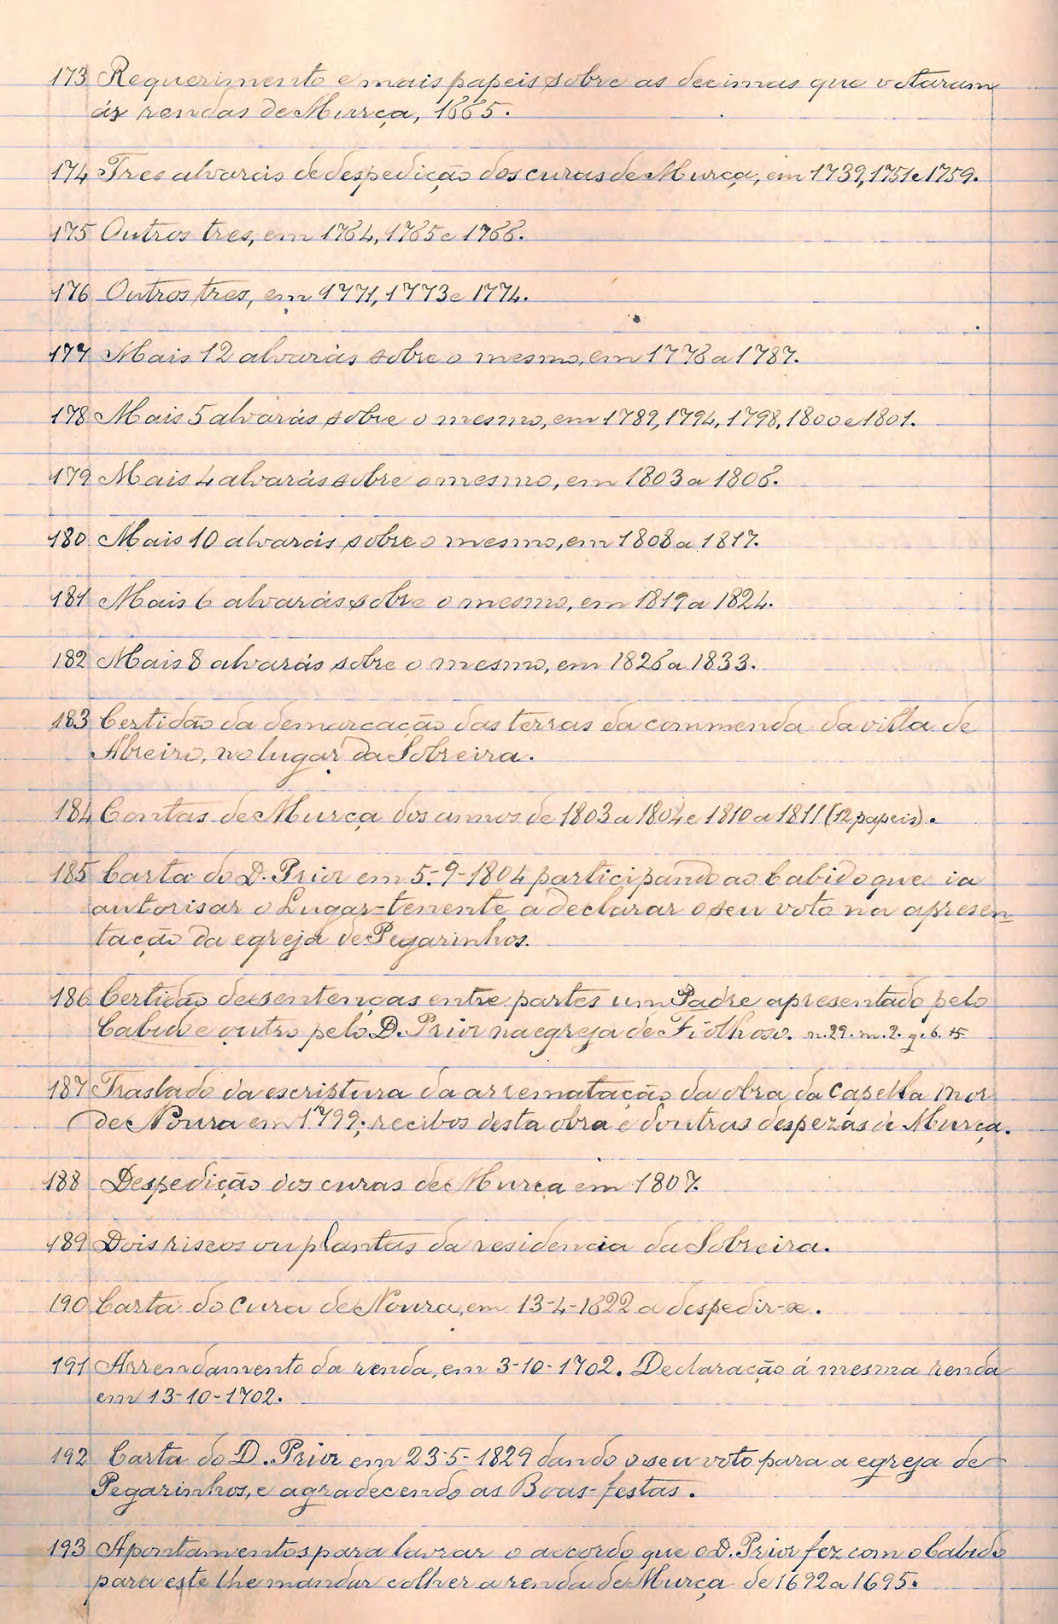 173 Requerimento e mais papeis sobre as decimas que votaram
ás rendas de Murça, 1665.
174 Tres alvarás de despedição dos curas de Murça, em 1739, 1751 e 1759.
175 Outros tres, em 1764, 1765 e 1766.
176 Outros tres, em 1771, 1773 e 1774.
177 Mais 12 alvarás sobre o mesmo, em 1776 a 1787.
178 Mais 5 alvarás sobre o mesmo, em 1789, 1794, 1798, 1800 e 1801.
179 Mais 4 alvarás sobre o mesmo, em 1803 a 1806.
180 Mais 10 alvarás sobre o mesmo, em 1808 a 1817.
181 Mais 6 alvarás sobre o mesmo, em 1819 a 1824.
182 Mais 8 alvarás sobre o mesmo, em 1826 a 1833.
183 Certidão da demarcação das terras da commenda da villa de
Abreiro, no lugar da Sobreira.
184 Contas de Murça dos annos de 1803 a 1804 e 1810 a 1811 (12 papeis).
185 Carta do D. Prior em 5-9-1804 participando ao Cabido que ia
autorisar o Lugar-tenente a declarar o seu voto na apresen-
tação da egreja de Pegarinhos.
186 Certidão de sentenças entre partes um Padre apresentado pelo
Cabido e outro pelo D. Prior na egreja de Fiolhoso. n. 29. m. 2. g. 6. 15
187 Traslado da escristura da arrematação da obra da Capella mor
de Noura em 1799; recibos desta obra e doutras despezas de Murça.
188 Despedição dos curas de Murça em 1807.
189 Dois riscos ou plantas da residencia da Sobreira.
190 Carta do cura de Noura, em 13-4-1822 a despedir-se.
191 Arrendamento da renda, em 3-10-1702. Declaração á mesma renda
em 13-10-1702.
192 Carta do D. Prior em 23-5-1829 dando o seu voto para a egreja de
Pegarinhos, e agradecendo as Boas-festas.
193 Apontamentos para lavrar o accordo que o D. Prior fez com o Cabido
para este lhe mandar colher a renda de Murça de 1692 a 1695.